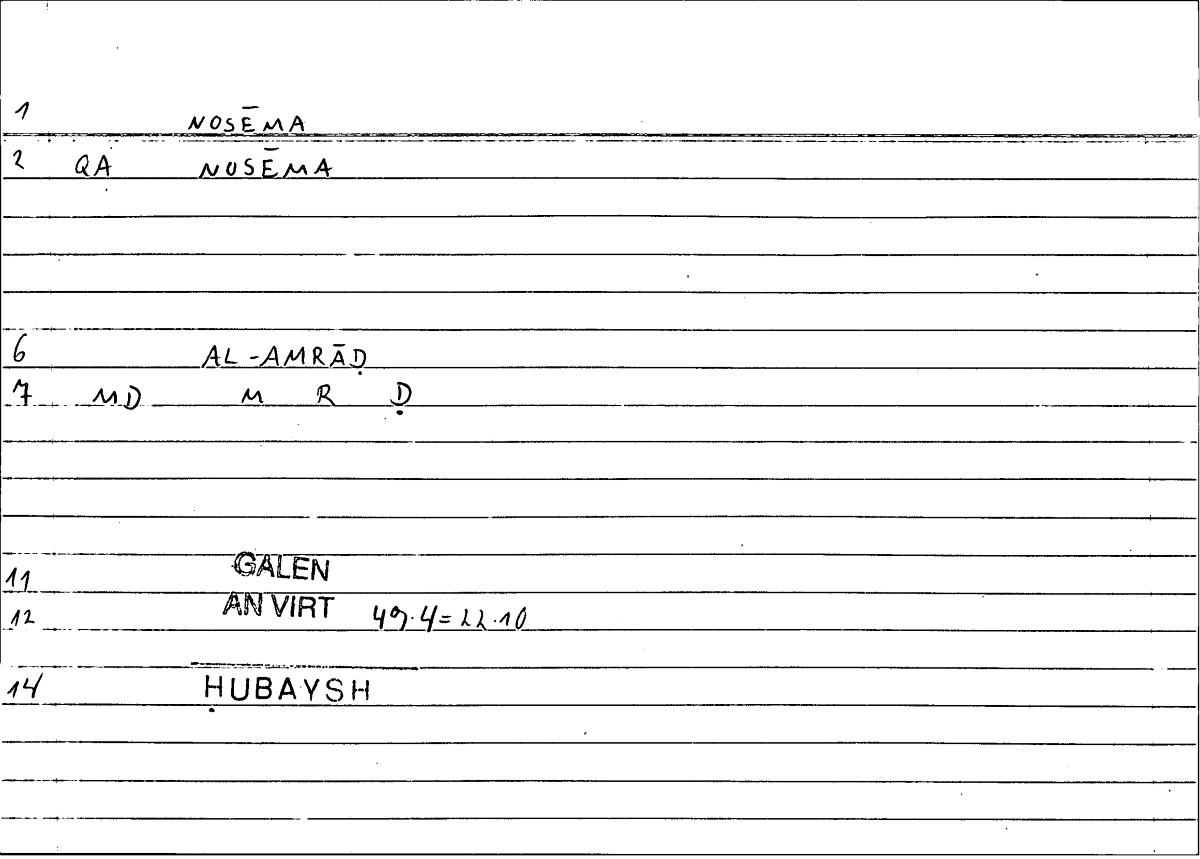 1 NOSĒMA
2 QA NOSĒMA
6 AL-AMRĀḌ
7 MD M R Ḍ
11 GALEN
12 AN VIRT 49.4=22.10
14 ḤUBAYSH